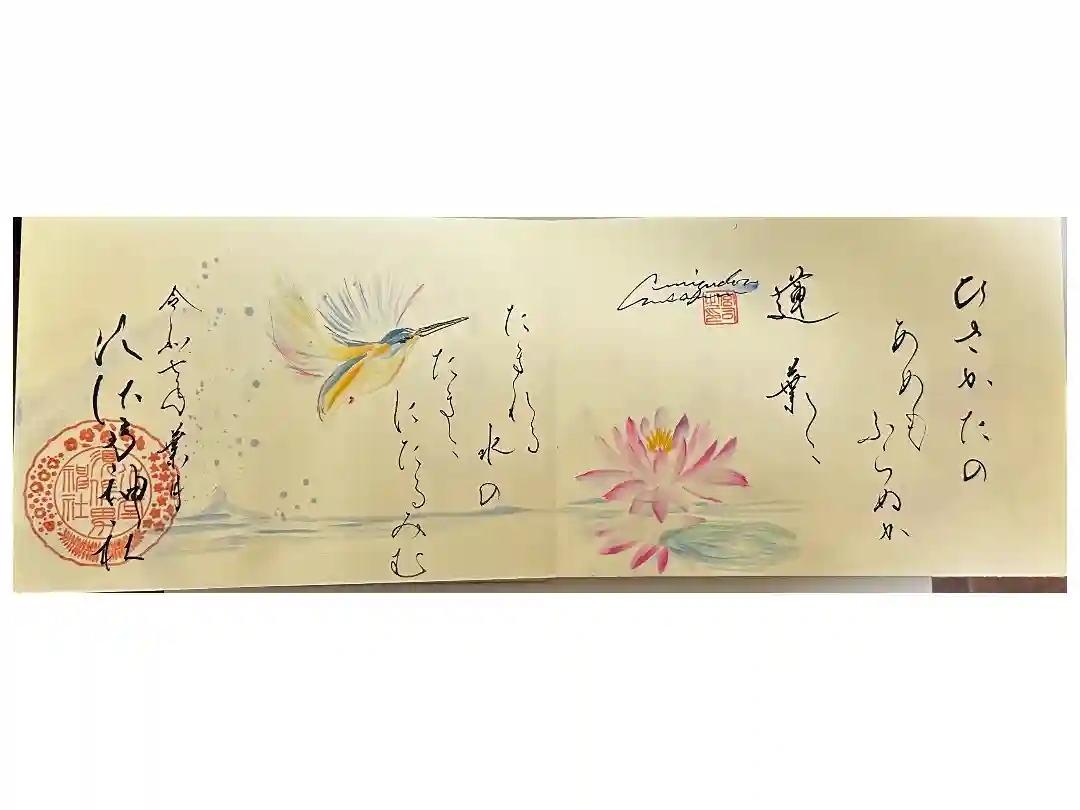 ひさかたの
あめも
ふらぬか
蓮葉に
宮司之印
たまれる
水の
たまに
にたるみむ
令和七年 葉月
神社